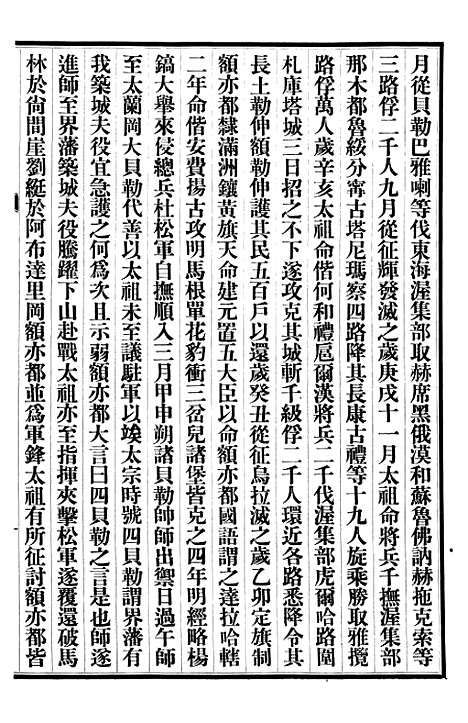 月從貝勒巴雅喇等伐東海渥集部取赫席黑俄漠和蘇魯佛訥赫拖克索等
三路俘二千人九月從征輝發滅之歲庚戌十一月太祖命將兵千撫渥集部
那木都魯綏分甯古塔尼瑪察四路降其長康古禮等十九人旋乘勝取雅攬
路俘萬人歲辛亥太祖命偕何和禮扈爾漢將兵二千伐渥集部虎爾哈路圍
札庫塔城三日招之不下遂攻克其城斬千級俘二千人環近各路悉降令其
長土勒伸額勒伸護其民五百戶以還歲癸丑從征烏拉滅之歲乙卯定旗制
額亦都隸滿洲鑲黃旗天命建元置五大臣以命額亦都國語謂之達拉哈轄
二年命偕安費揚古攻明馬根單花豹衝三岔兒諸堡皆克之四年明經略楊
鎬大舉來侵總兵杜松軍自撫順入三月甲申朔諸貝勒帥師出禦日過午師
至太蘭岡大貝勒代善以太祖未至議駐軍以竢太宗時號四貝勒謂界藩有
我築城夫役宜急護之何爲次且示弱額亦都大言曰四貝勒之言是也師遂
進師至界藩築城夫役騰躍下山赴戰太祖亦至指揮夾擊松軍遂覆還破馬
林於尙間崖劉綎於阿布達里岡額亦都並爲軍鋒太祖有所征討額亦都皆